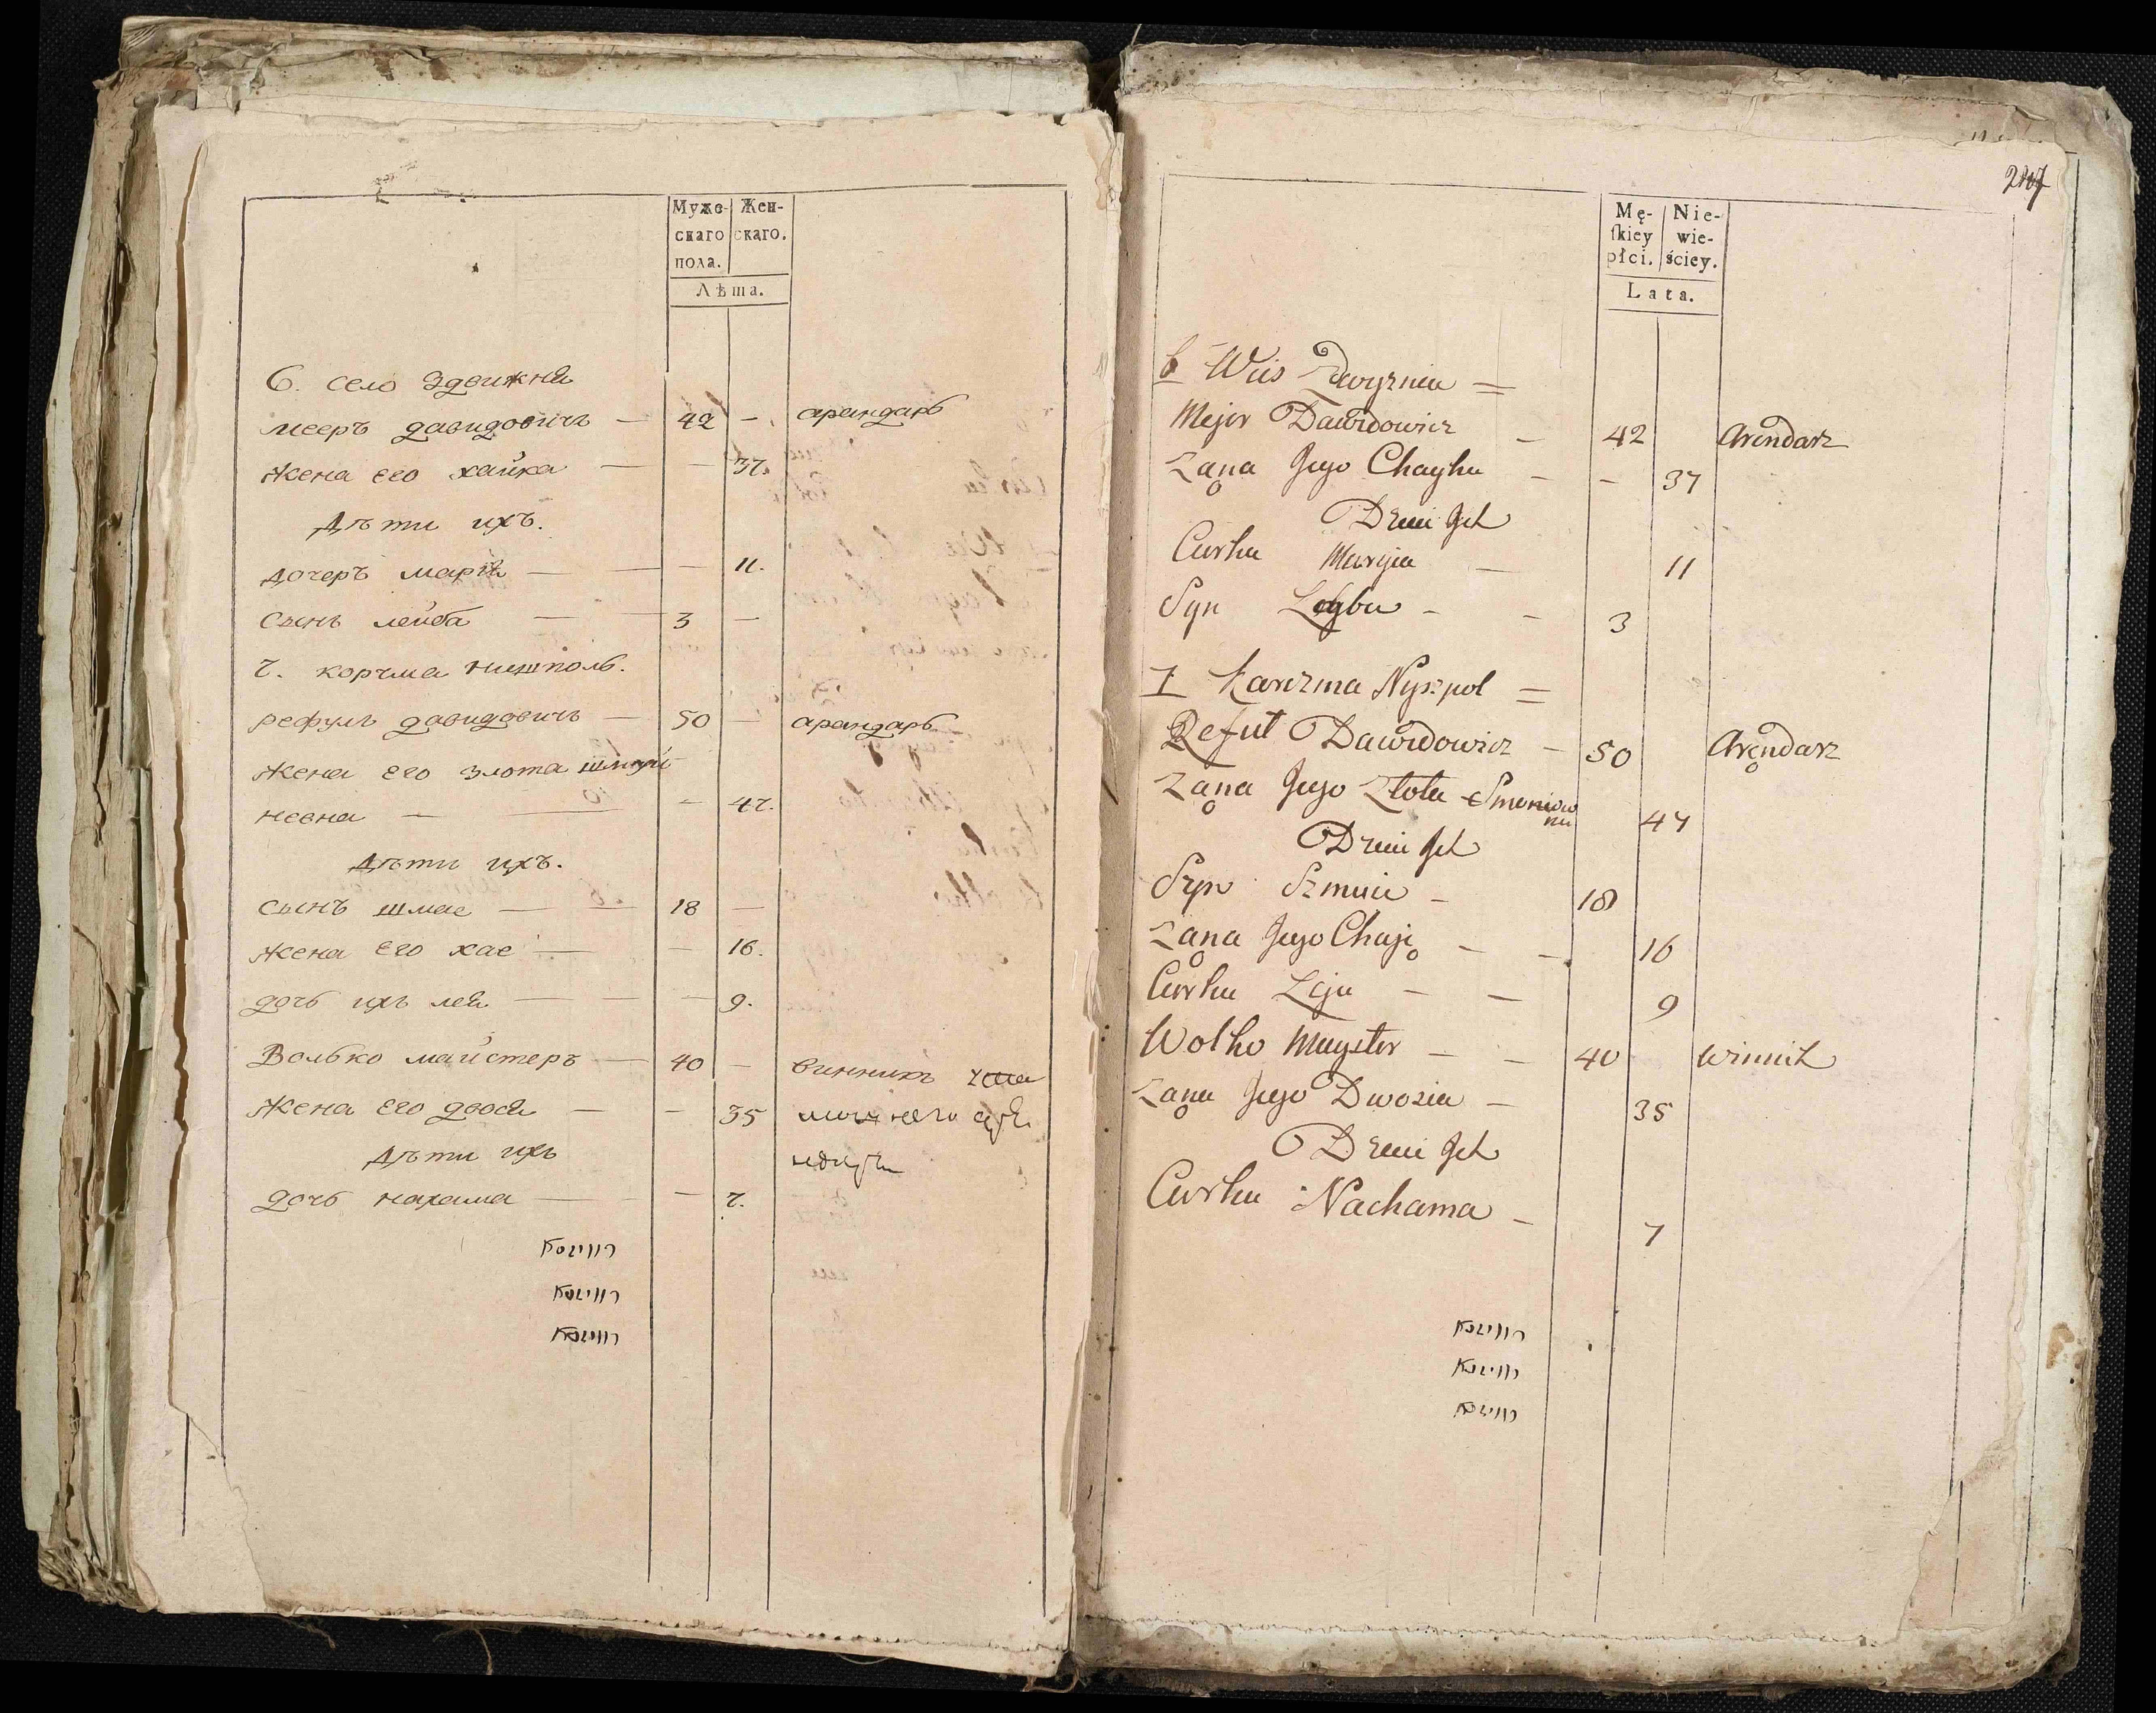 Муже-
скаго
пола.
Жен-
скаго.
Лѣта.
6. село Здвижня
мееръ давидовичъ — 42 — арандарь
жена его хайка — — 37.
дѣти ихъ.
дочеръ марія — — — 11.
сынъ лейба — — 3 —
7. корчма нишполь.
рефулъ давидовичъ — 50 — арандарь
жена его злота
невна — — — 47.
дѣти ихъ.
сынъ шмае — — 18 —
жена его хае — — 16.
дочь ихъ лея — — — 9.
Волько майстеръ — 40 — винникъ
жена его двося — — 35
дѣти ихъ
дочь нахама — — — 7.
217
Mę-
ſkiey
płci.
Nie-
wie-
ściey.
Lata.
6 Wieś Zdwyżnia =
Mejer Dawidowicz — 42 Arendarz
Żąna Jego Chayka — — 37
Dzieci Ich
Curka Maryia — 11
Syn Leyba — — 3
7 Karczma Nyszpol =
Reful Dawidowicz — 50 Aręndarz
Żąna Jego Złota Smoniow
na 47
Dzieci Ich
Syn Szmaie — 18
Żąna Jego Chaję — — 16
Curka Leja — — 9
Wolko Mayster — — 40 Winnik
Żąna Jego Dwosia — 35
Dzieci Ich
Curka Nachama — 7